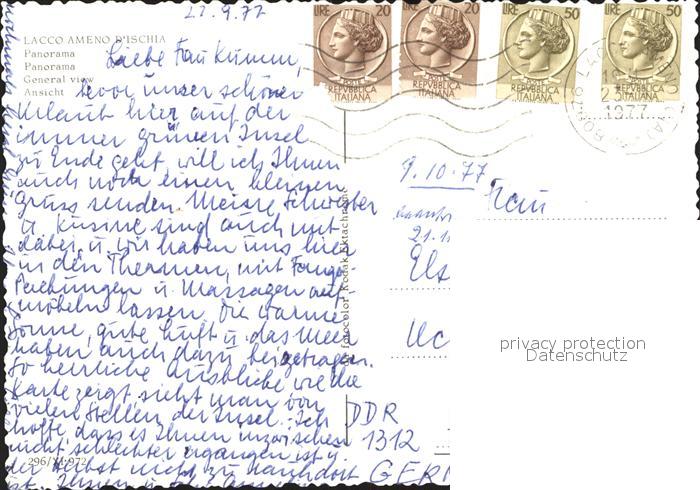 21.9.77
LACCO AMENO D'ISCHIA
Panorama
Panorama
General view
Ansicht
Liebe Frau Kumm,
bevor unser schöner
Urlaub hier auf der
immer grünen Insel
zu Ende geht, will ich Ihnen
auch noch einen kleinen
Gruss senden. Meine Schwester
u. Kusine sind auch mit
dabei, u. wir haben uns hier
in den Thermen, mit Fango-
Packungen u. Massagen auf-
möbeln lassen. Die warme
Sonne, gute Luft u. das Meer
haben auch dazu beigetragen.
So herrliche Ausblicke wie die
Karte zeigt sieht man von
vielen Stellen der Insel. Ich
hoffe, dass es Ihnen inzwischen
nicht schlechter ergangen ist u.
der Herbst nicht zu
ist. Ihnen u.
296/XI-972
Fotocolor Kodak Ektachrome
LIRE 20
POSTE
REPVBBLICA
ITALIANA
20
REPVBBLICA
ITALIANA
LIRE 50
POSTE
REPVBBLICA
ITALIANA
LIRE 50
POSTE
REPVBBLICA
ITALIANA
1977
9.10.77
Frau
21.1
Els
Uc
privacy protection
Datenschutz
DDR
1312
GER